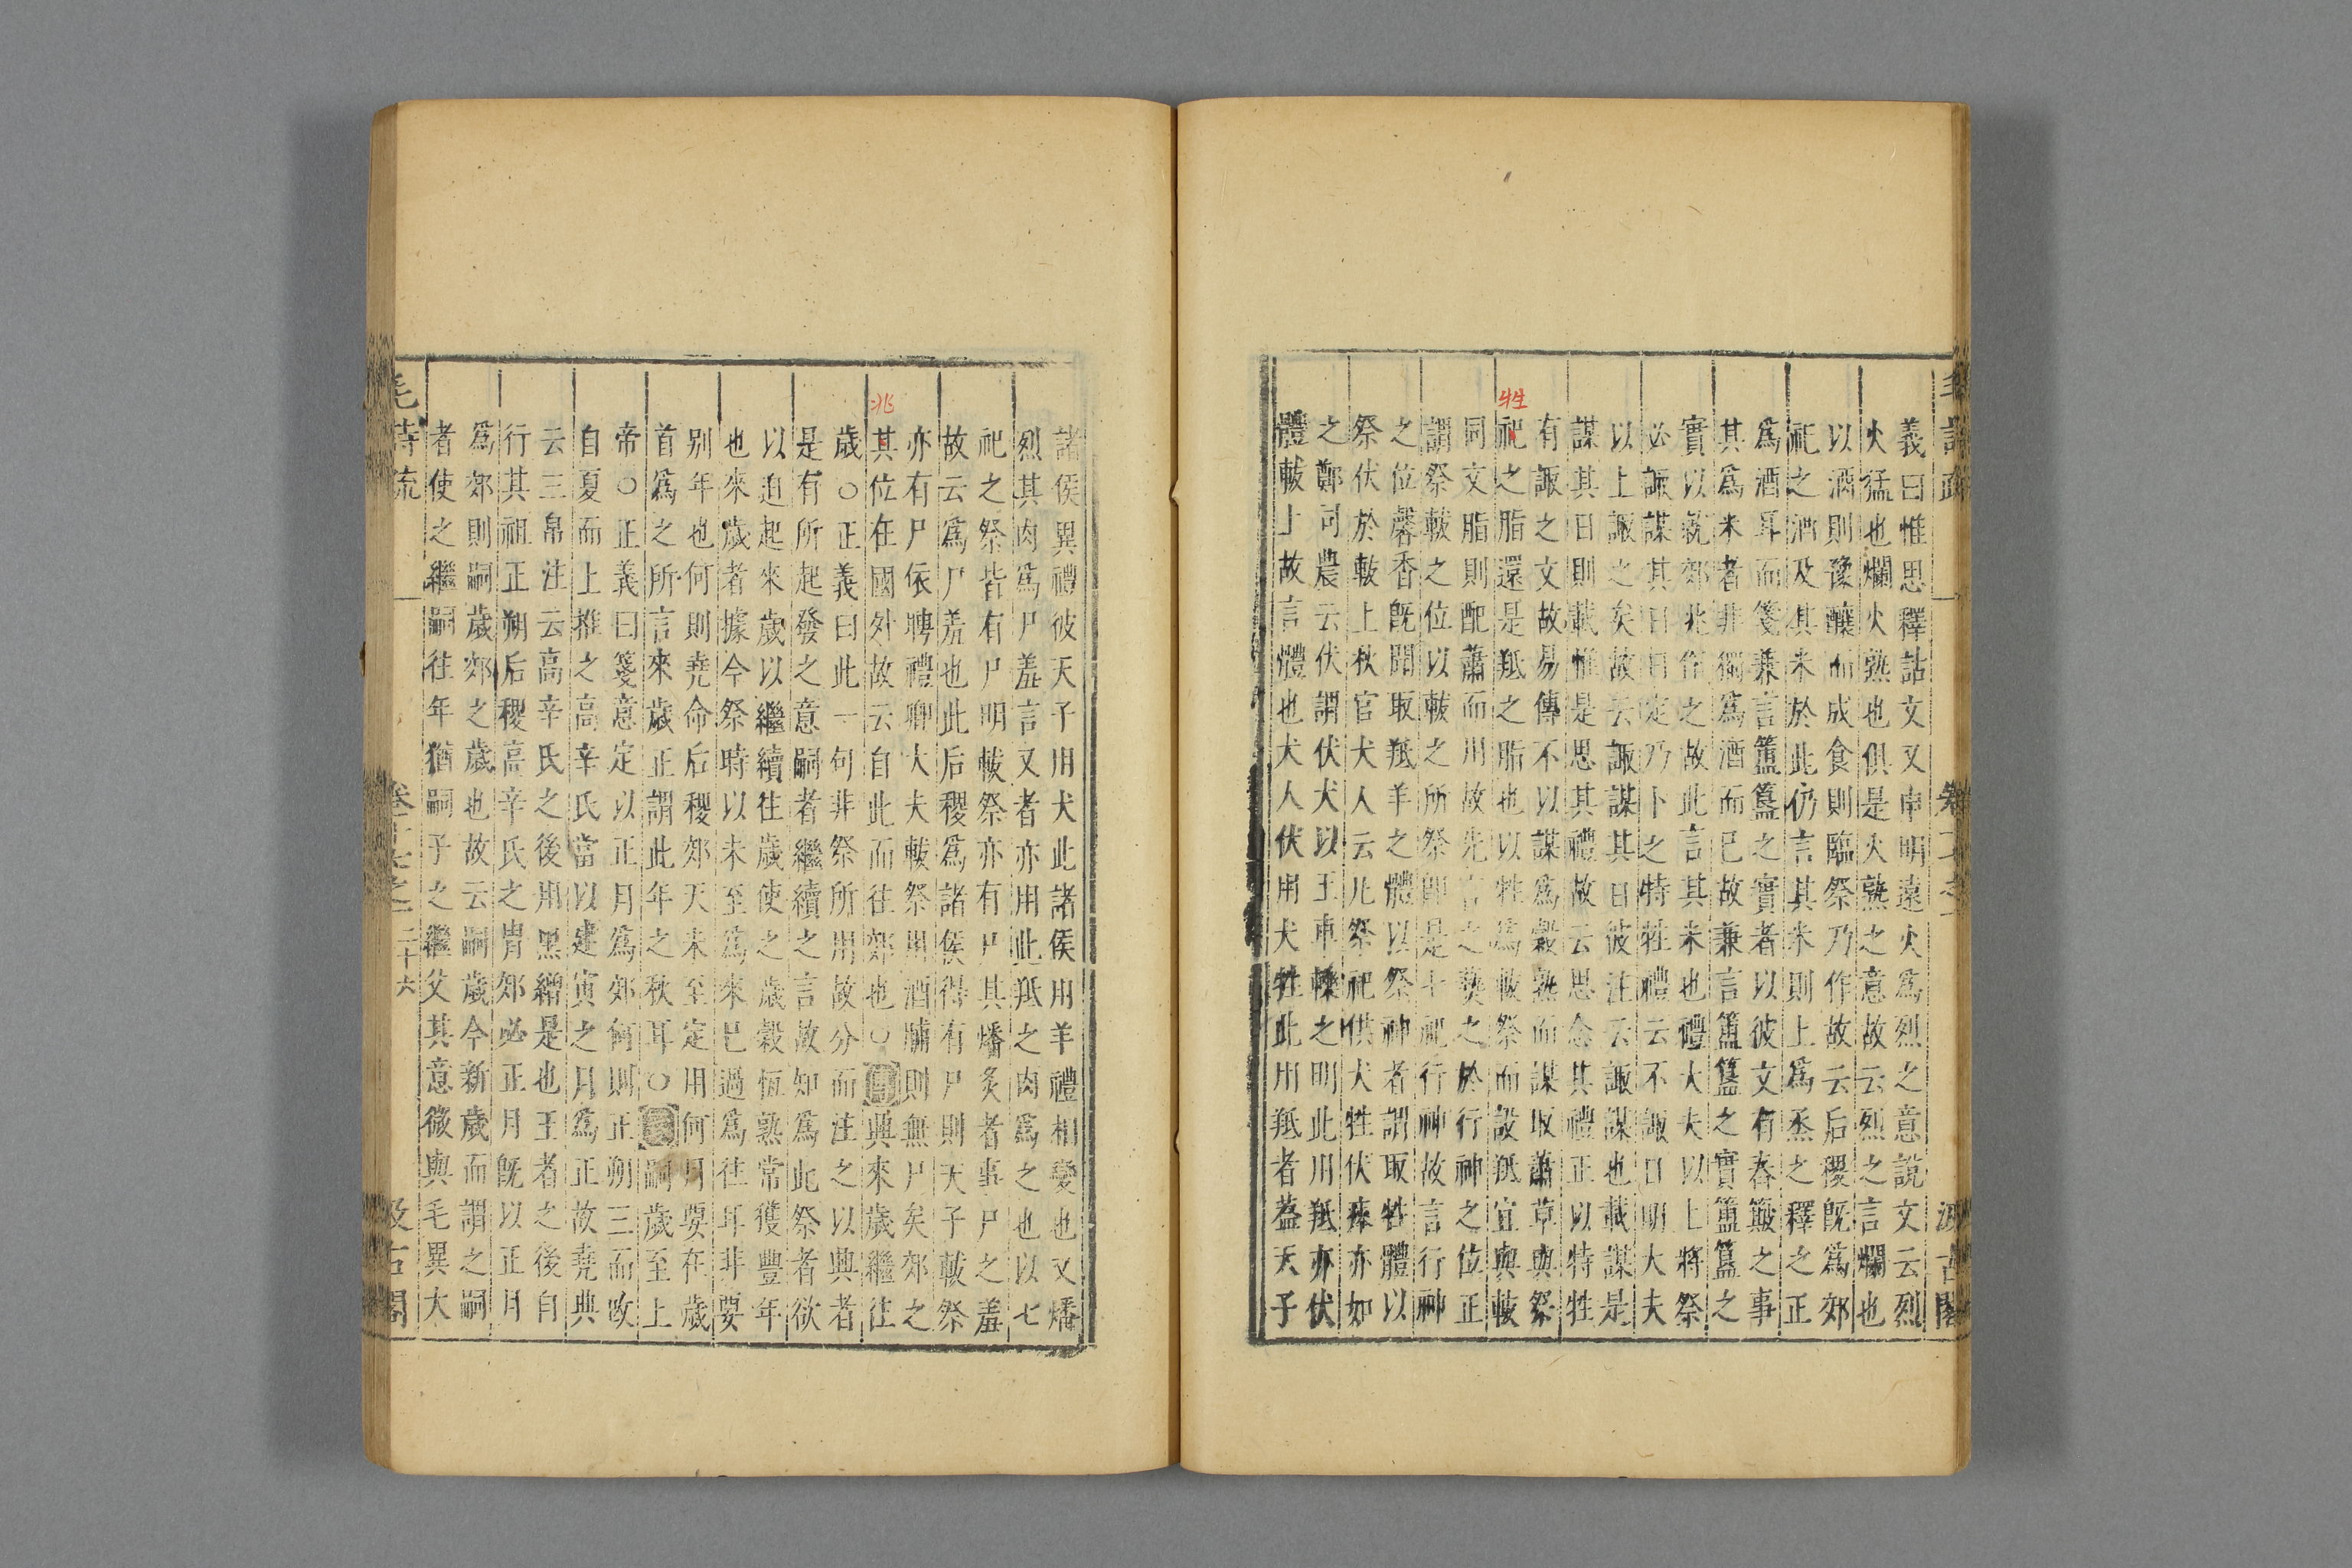 牲
義曰惟思釋詁文又申明遠火爲烈之意說文云烈
火猛也爛火熟也俱是火熟之意故云烈之言爛也
以酒則豫釀而成食則臨祭乃作故云后稷旣爲郊
祀之酒及其米於此仍言其米則上爲烝之釋之正
爲酒耳而箋兼言簠簋之實者以彼文有舂簸之事
其爲米者非獨爲酒而已故兼言簠簋之實簠簋之
實以就郊兆俗之故此言其米也禮大夫以上將祭
必諏謀其日日定乃卜之特牲禮云不諏日明大夫
以上諏之矣故云諏謀其日彼注云諏謀也載謀是
謀其日則載惟是思其禮故云思念其禮正以特牲
有諏之文故易傳不以謀爲穀熟而謀取蕭草與祭
祀之脂還是羝之脂也以牲爲軷祭而設羝宜與軷
同文脂則配蕭而用故先言之爇之於行神之位正
謂祭軷之位以軷之所祭卽是七祀行神故言行神
之位馨香旣聞取羝羊之體以祭神者謂取牲體以
祭伏於軷上秋官犬人云凡祭祀供犬牲伏瘞亦如
之鄭司農云伏謂伏犬以王車轢之明此用羝亦伏
體軷上故言體也犬人伏用犬牲此用羝者蓋天子
兆
諸侯異禮彼天子用犬此諸侯用羊禮相變也又燔
烈其肉爲尸羞言又者亦用此羝之肉爲之也以七
祀之祭皆有尸明軷祭亦有尸其燔炙者事尸之羞
故云爲尸羞也此后稷爲諸侯得有尸則天子軷祭
亦有尸依聘禮卿大夫軷祭用酒脯則無尸矣郊之
其位在國外故云自此而往郊也○興來歲繼往
歲○正義曰此一句非祭所用故分而注之以興者
是有所起發之意嗣者繼續之言故知爲此祭者欲
以迫起來歲以繼續往歲使之歲穀恆熟常獲豐年
也來歲者據今祭時以未至爲來已過爲往耳非要
别年也何則堯命后稷郊天未至定用何月要在歲
首爲之所言來歲正謂此年之秋耳○嗣歲至上
帝○正義曰箋意定以正月爲郊何則正朔三而改
自夏而上推之高辛氏當以建寅之月爲正故堯典
云三帛注云高辛氏之後用黑繒是也王者之後自
行其祖正朔后稷高辛氏之胄郊必正月旣以正月
爲郊則嗣歲郊之歲也故云嗣歲今新歲而謂之嗣
者使之繼嗣往年猶嗣子之繼父其意微與毛異大
毛詩疏 卷十七之一 二十六 汲古閣